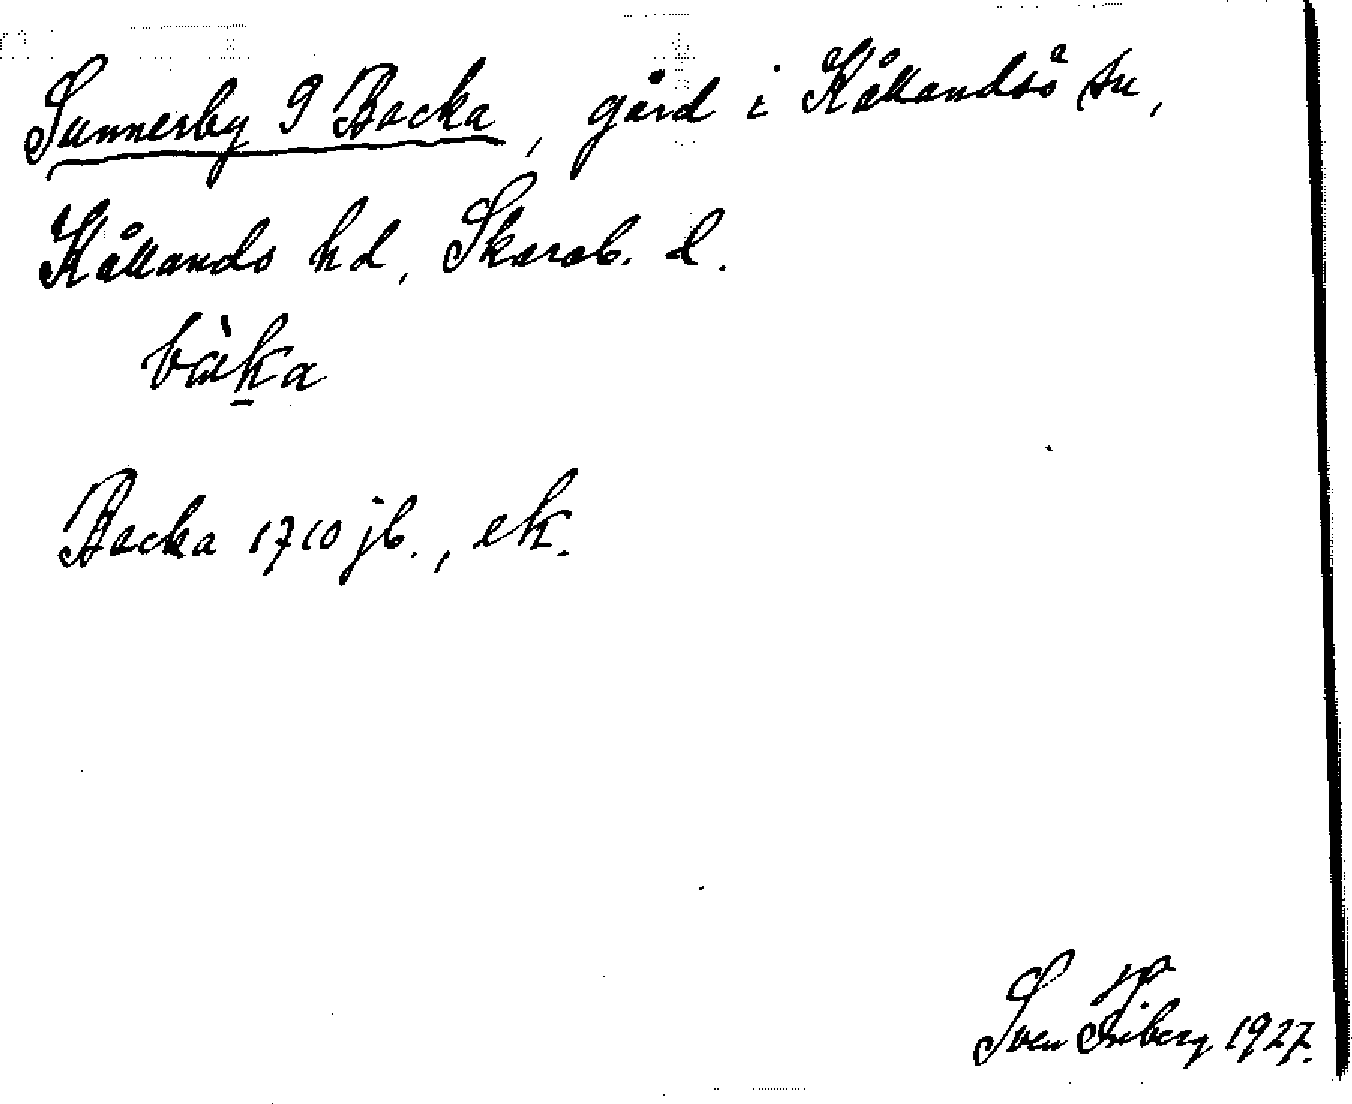 Sunnerby 9 Backa, gård i Kållandsö sn,
Kållands hd, Skarab. l.
bàka
Backa 1710 jb., ek.
Sven Friberg 1927.